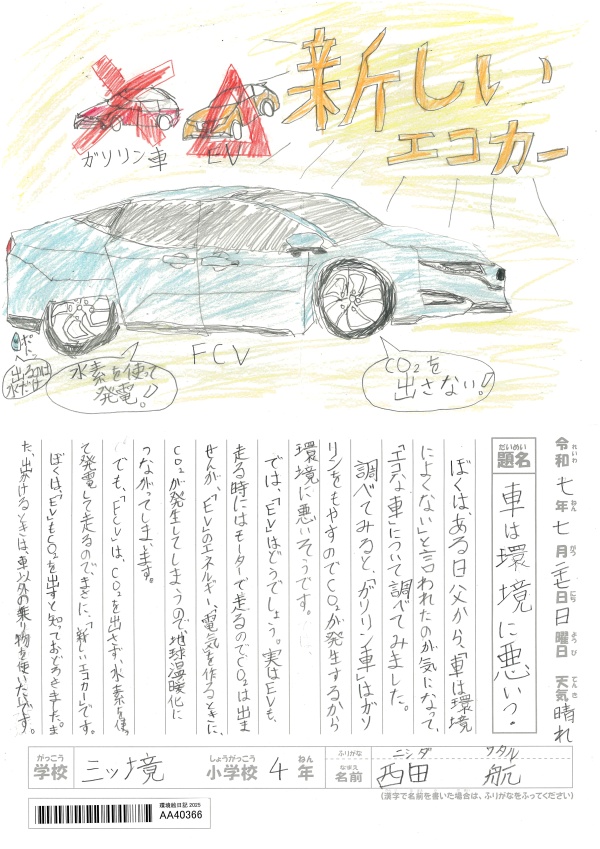 新しい
エコカー
ガソリン車
EV
FCV
ポトッ
出るのは
水だけ
水素を使って
発電!!
CO2を
出さない!!
令和七年七月二七日日曜日 天気 晴れ
れいわ ねん がつ にち ようび てんき
だいめい
題名
車は環境に悪いっ?
ぼくは、ある日、父から、「車は環境
によくない」と言われたのが気になって、
「エコな車」について調べてみました。
調べてみると、「ガソリン車」はガソ
リンをもやすのでCO2が発生するから
環境に悪いそうです。
では、「EV」はどうでしょう。実はEVも、
走る時にはモーターで走るのでCO2は出ま
せんが、「EV」のエネルギー、電気を作るときに、
CO2が発生してしまうので、地球温暖化に
つながってしまいます。
でも、「FCV」は、CO2を出さず、水素を使っ
て発電して走るので、まさに、「新しいエコカー」です。
ぼくは「EV」もCO2を出すと知っておどろきました。ま
た、出かけるときは、車以外の乗り物を使いたいです。
がっこう
学校
三ッ境
しょうがっこう
小学校
4
ねん
年
ふりがな
ニシダ ワタル
なまえ
名前
西田 航
(漢字で名前を書いた場合は、ふりがなをふってください)
環境絵日記 2025
AA40366